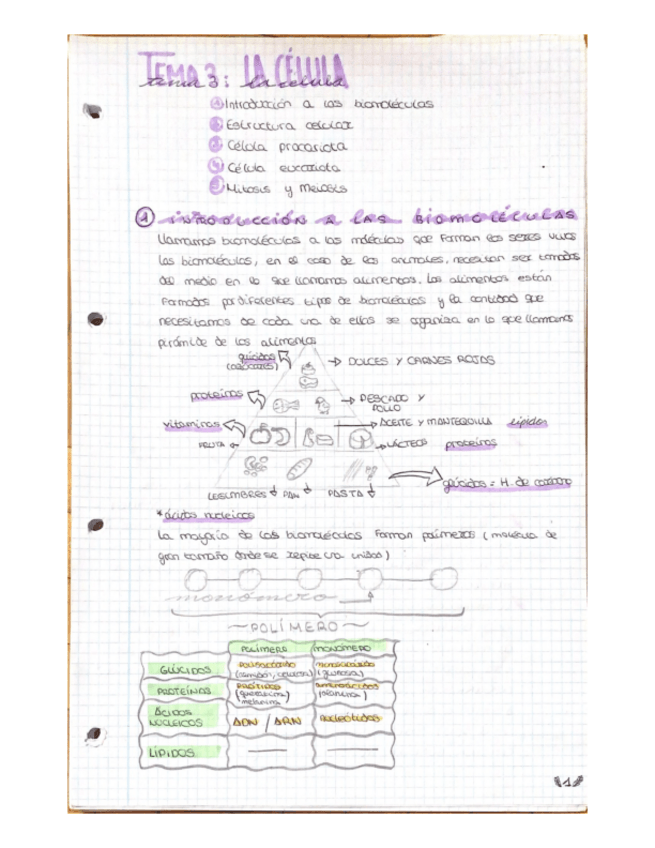 TEMA 3: LA CÉLULA
tema 3: la célula
① Introducción a las biomoléculas
② Estructura celular
③ Célula procariota
④ Célula eucariota
⑤ Mitosis y Meiosis
① INTRODUCCIÓN A LAS BIOMOLÉCULAS
Llamamos biomoléculas a las moléculas que forman los seres vivos
las biomoléculas, en el caso de los animales, necesitan ser tomadas
del medio en lo que llamamos alimentos. Los alimentos están
formados por diferentes tipos de biomoléculas y la cantidad que
necesitamos de cada una de ellas se organiza en lo que llamamos
pirámide de los alimentos
glúcidos
(azúcares)
→ DULCES Y CARNES ROJAS
proteínas
→ PESCADO Y
POLLO
vitaminas
→ ACEITE Y MANTEQUILLA lípidos
FRUTA
→ LÁCTEOS proteínas
LEGUMBRES PAN PASTA
glúcidos = H. de carbono
*ácidos nucleicos
La mayoría de las biomoléculas forman polímeros (molécula de
gran tamaño donde se repite una unidad)
monómero
~POLÍMERO~
POLÍMERO MONÓMERO
GLÚCIDOS polisacárido monosacárido
(almidón, celulosa) (glucosa)
PROTEÍNAS PRÓTIDOS aminoácidos
(queratina) (alanina)
melanina
ÁCIDOS
NUCLEICOS ADN / ARN nucleótidos
LÍPIDOS — —
1